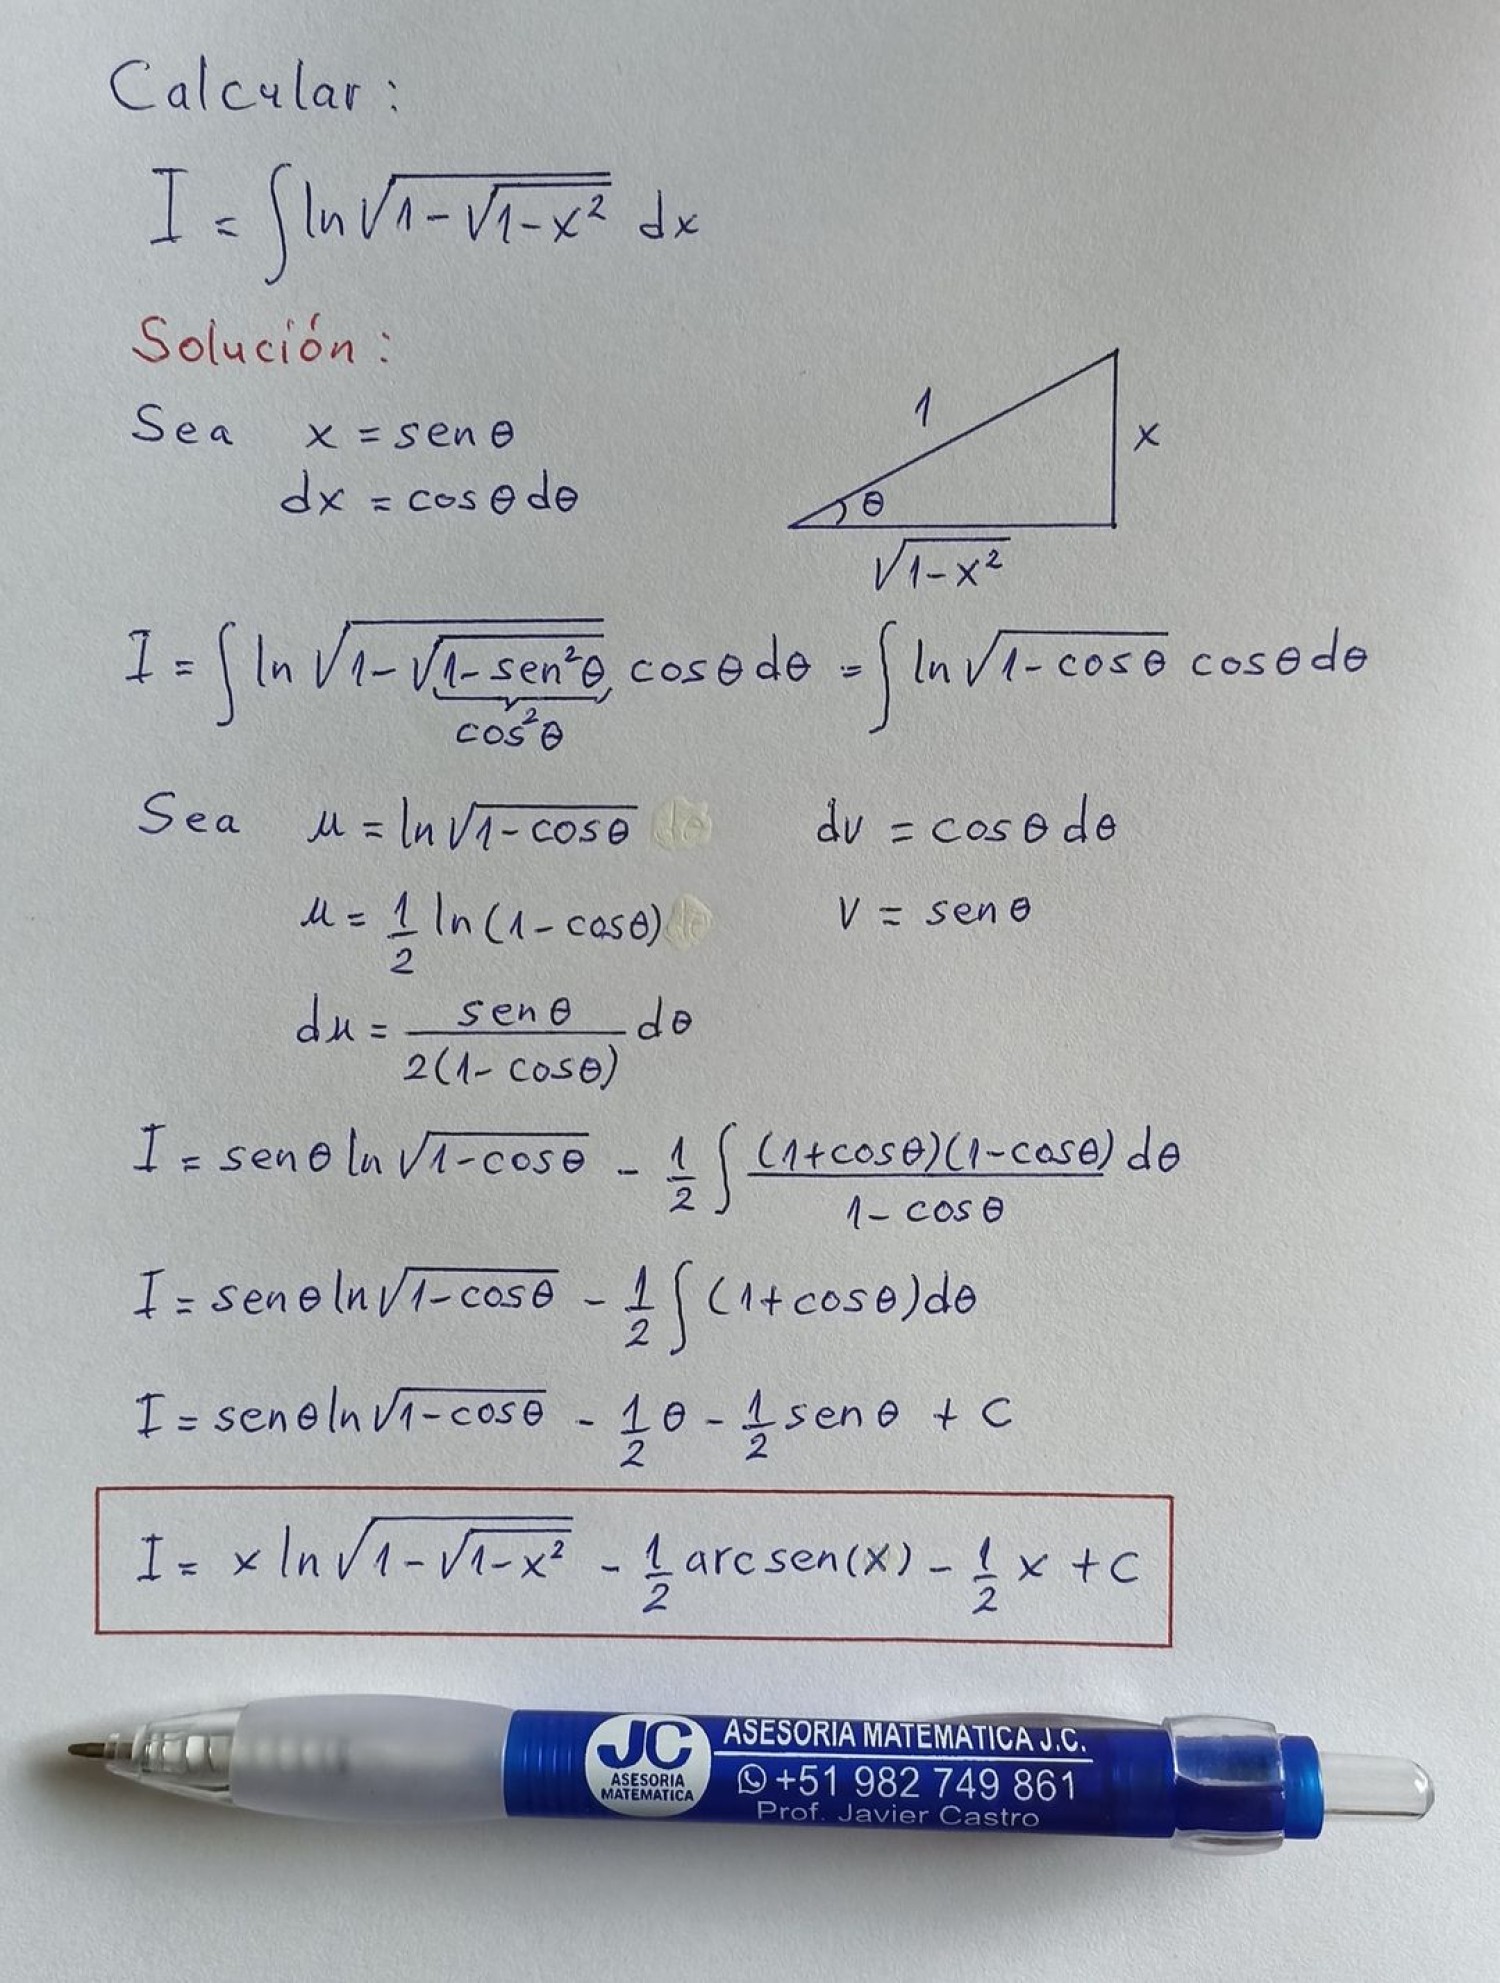 Calcular:
I = ∫ ln √(1-√(1-x²)) dx
Solución:
Sea x = senθ
dx = cosθdθ
1
x
θ
√(1-x²)
I = ∫ ln √(1-√(1-sen²θ)) cosθdθ = ∫ ln √(1-cosθ) cosθdθ
cos²θ
Sea μ = ln √(1-cosθ) dv = cosθdθ
μ = 1/2 ln(1-cosθ) v = senθ
dμ = senθ/(2(1-cosθ)) dθ
I = senθ ln √(1-cosθ) - 1/2 ∫ (1+cosθ)(1-cosθ)/(1-cosθ) dθ
I = senθ ln √(1-cosθ) - 1/2 ∫ (1+cosθ)dθ
I = senθ ln √(1-cosθ) - 1/2 θ - 1/2 senθ + C
I = x ln √(1-√(1-x²)) - 1/2 arcsen(x) - 1/2 x + C
JC
ASESORIA
MATEMATICA
ASESORIA MATEMATICA J.C.
+51 982 749 861
Prof. Javier Castro